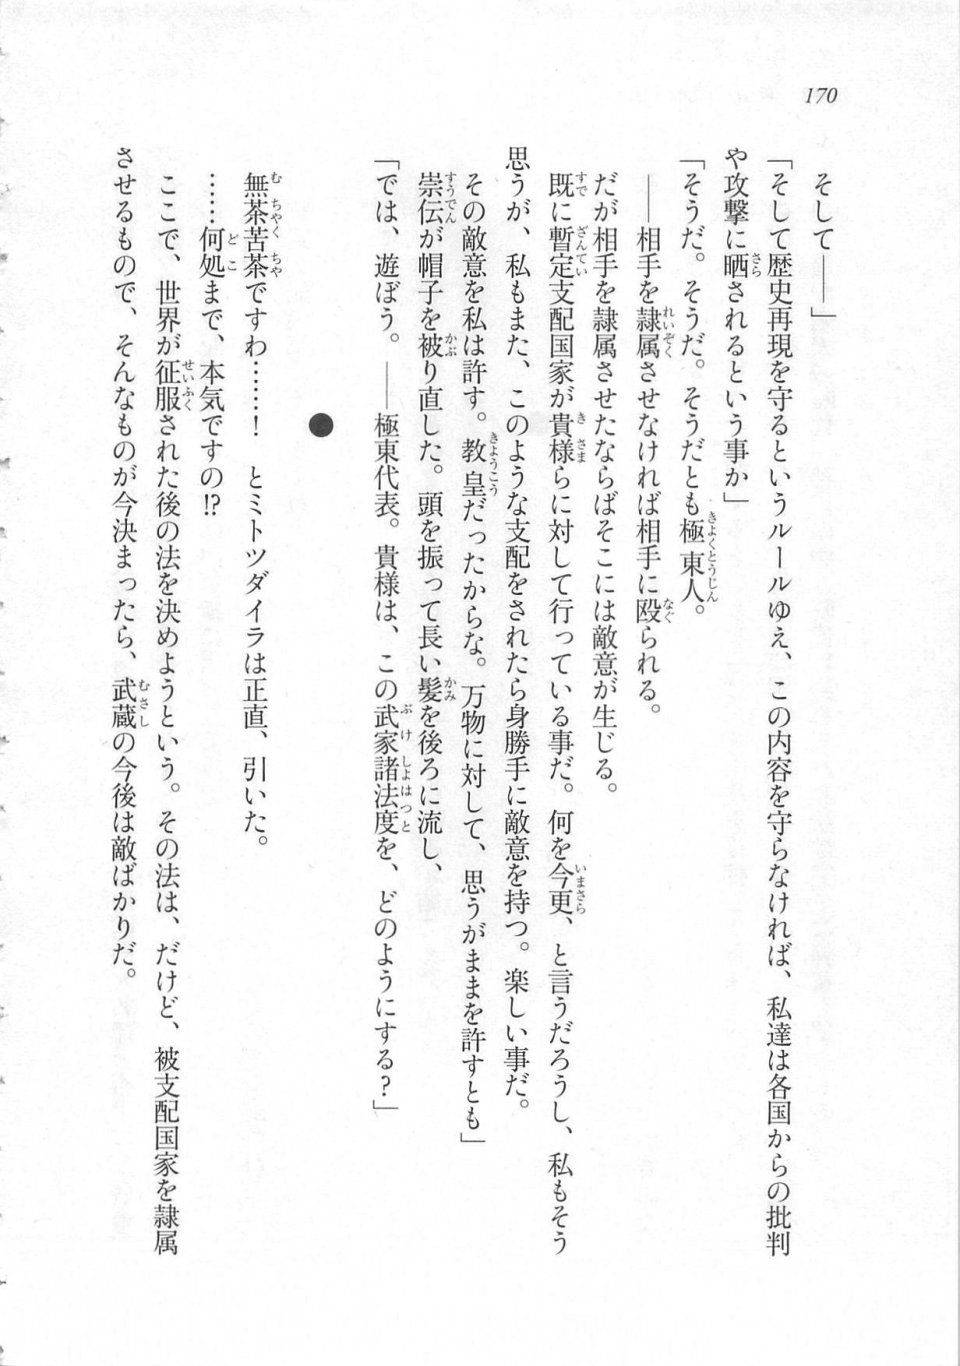 170
そして――」
「そして歴史再現を守るというルールゆえ、この内容を守らなければ、私達は各国からの批判
や攻撃に晒されるという事か」
「そうだ。そうだ。そうだとも極東人。
――相手を隷属させなければ相手に殴られる。
だが相手を隷属させたならばそこには敵意が生じる。
既に暫定支配国家が貴様らに対して行っている事だ。何を今更、と言うだろうし、私もそう
思うが、私もまた、このような支配をされたら身勝手に敵意を持つ。楽しい事だ。
その敵意を私は許す。教皇だったからな。万物に対して、思うがままを許すとも」
崇伝が帽子を被り直した。頭を振って長い髪を後ろに流し、
「では、遊ぼう。――極東代表。貴様は、この武家諸法度を、どのようにする？」
●
無茶苦茶ですわ……！　とミトツダイラは正直、引いた。
……何処まで、本気ですの!?
ここで、世界が征服された後の法を決めようという。その法は、だけど、被支配国家を隷属
させるもので、そんなものが今決まったら、武蔵の今後は敵ばかりだ。